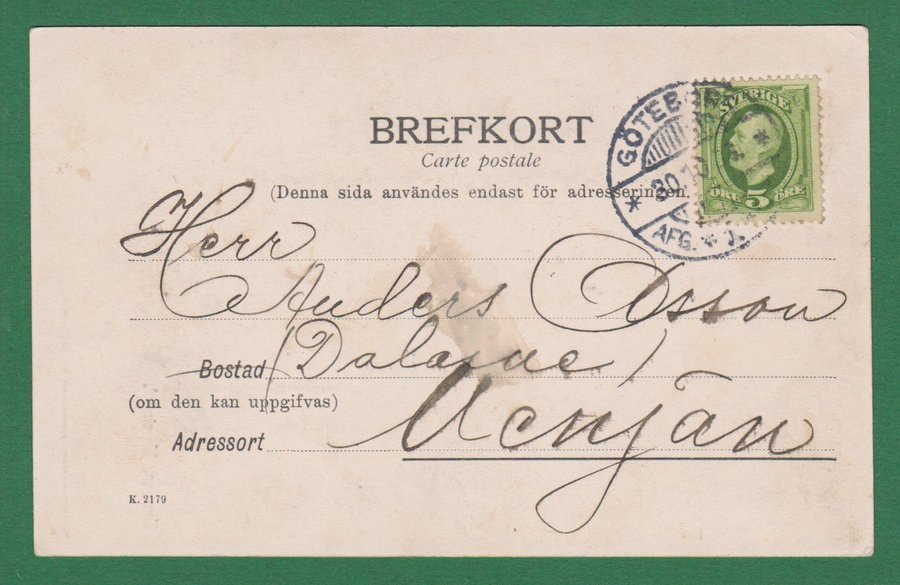 BREFKORT
Carte postale
(Denna sida användes endast för adresseringen
GÖTEBORG
30.10
AFG. * J.
SVERIGE
ÖRE 5 ÖRE
Herr
Anders Olsson
(Dalarne)
Bostad
(om den kan uppgifvas)
Venjan
Adressort
K. 2179